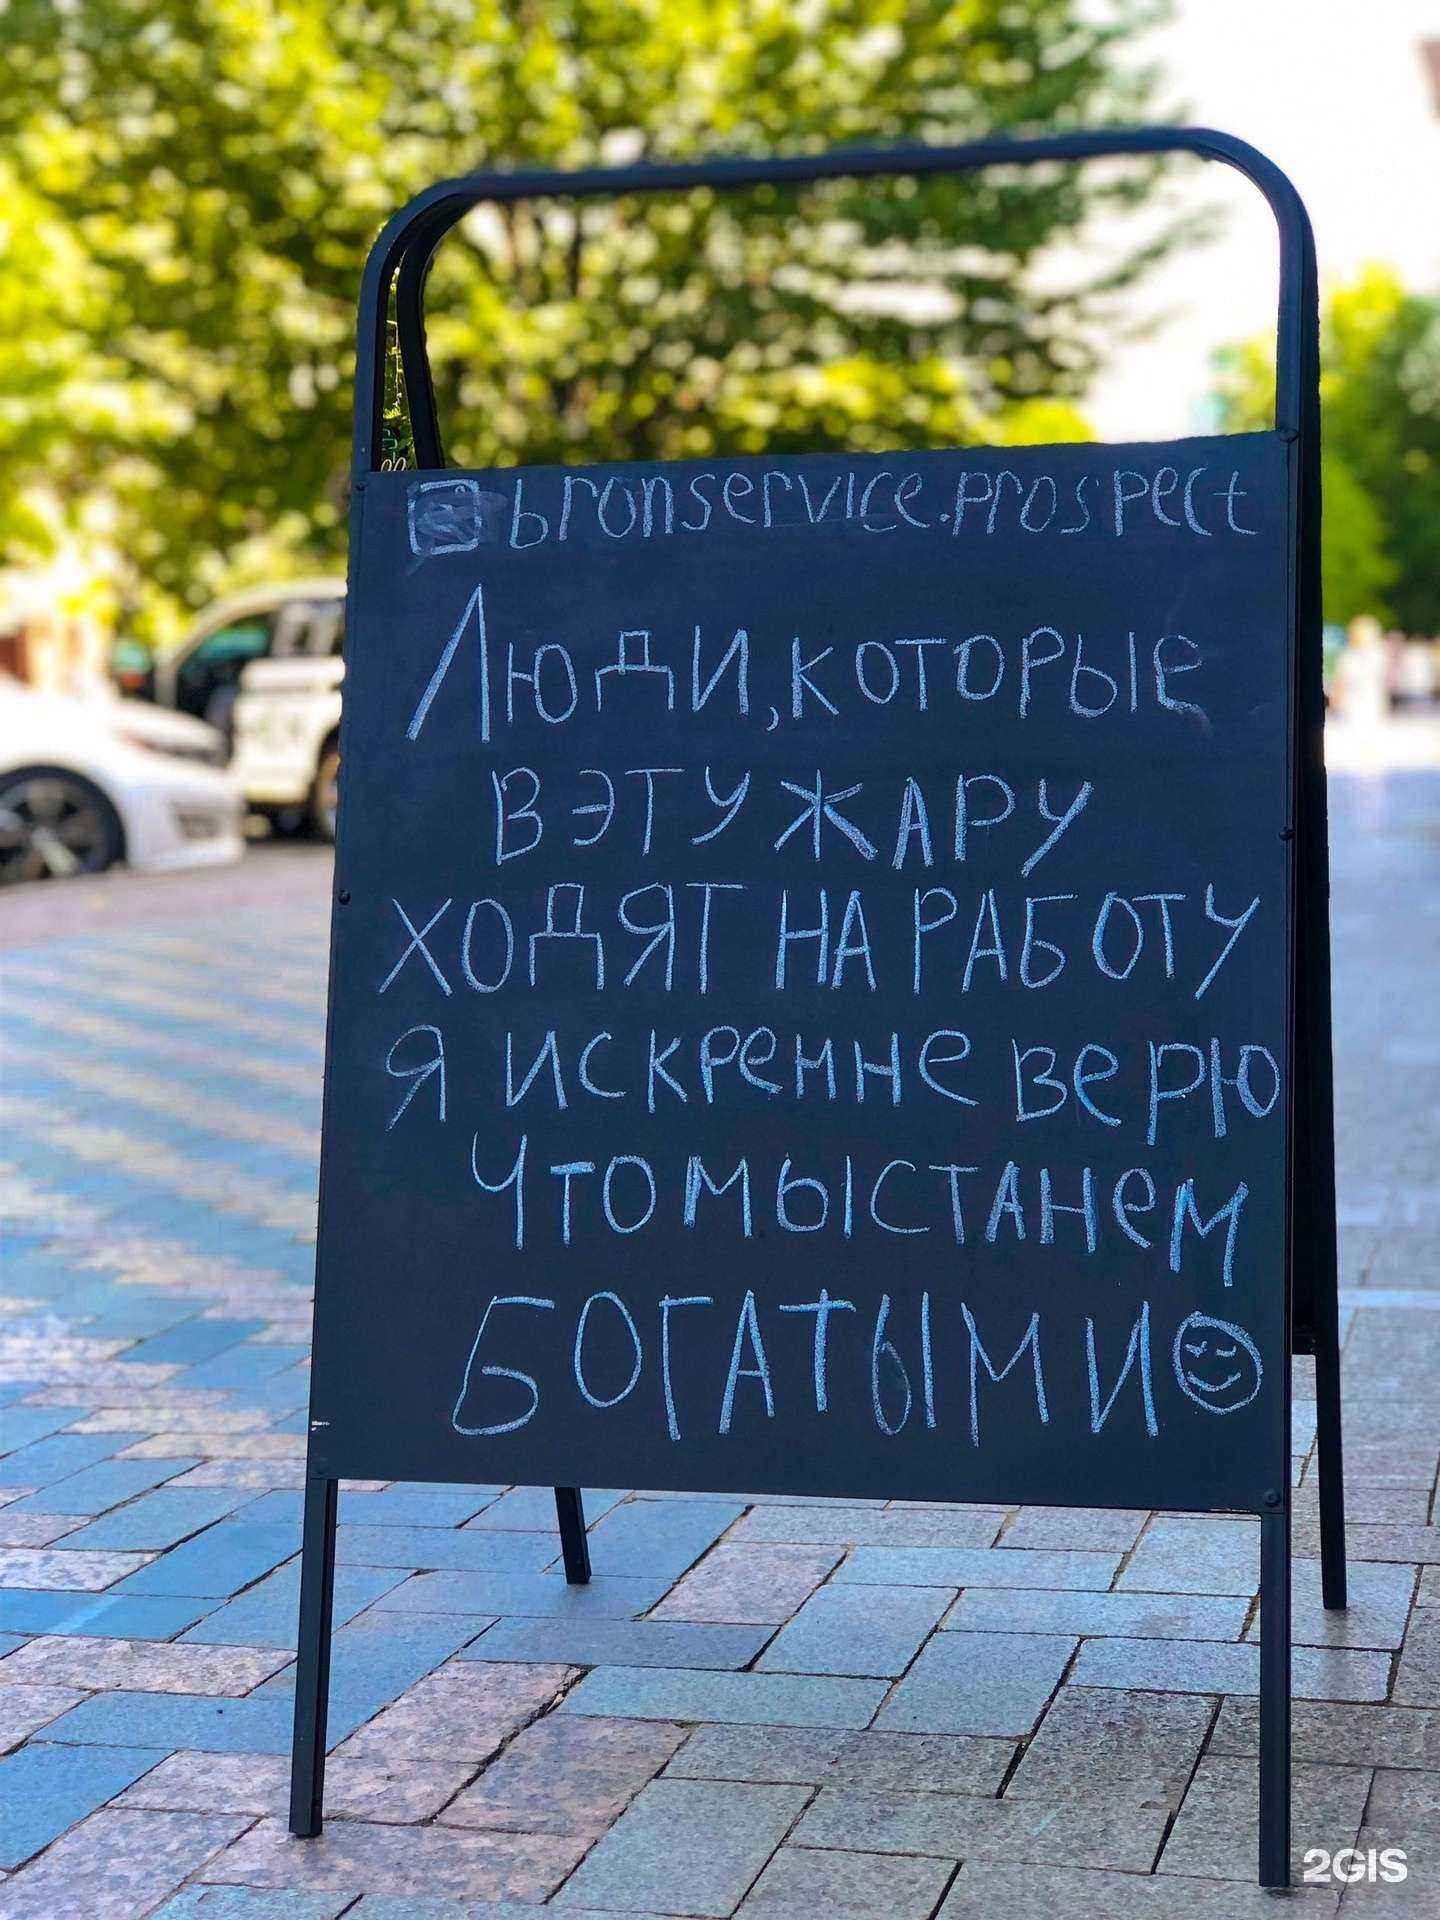 bronservice.prospect
Люди, которые
в эту жару
ходят на работу
я искренне верю
что мы станем
богатыми
2GIS